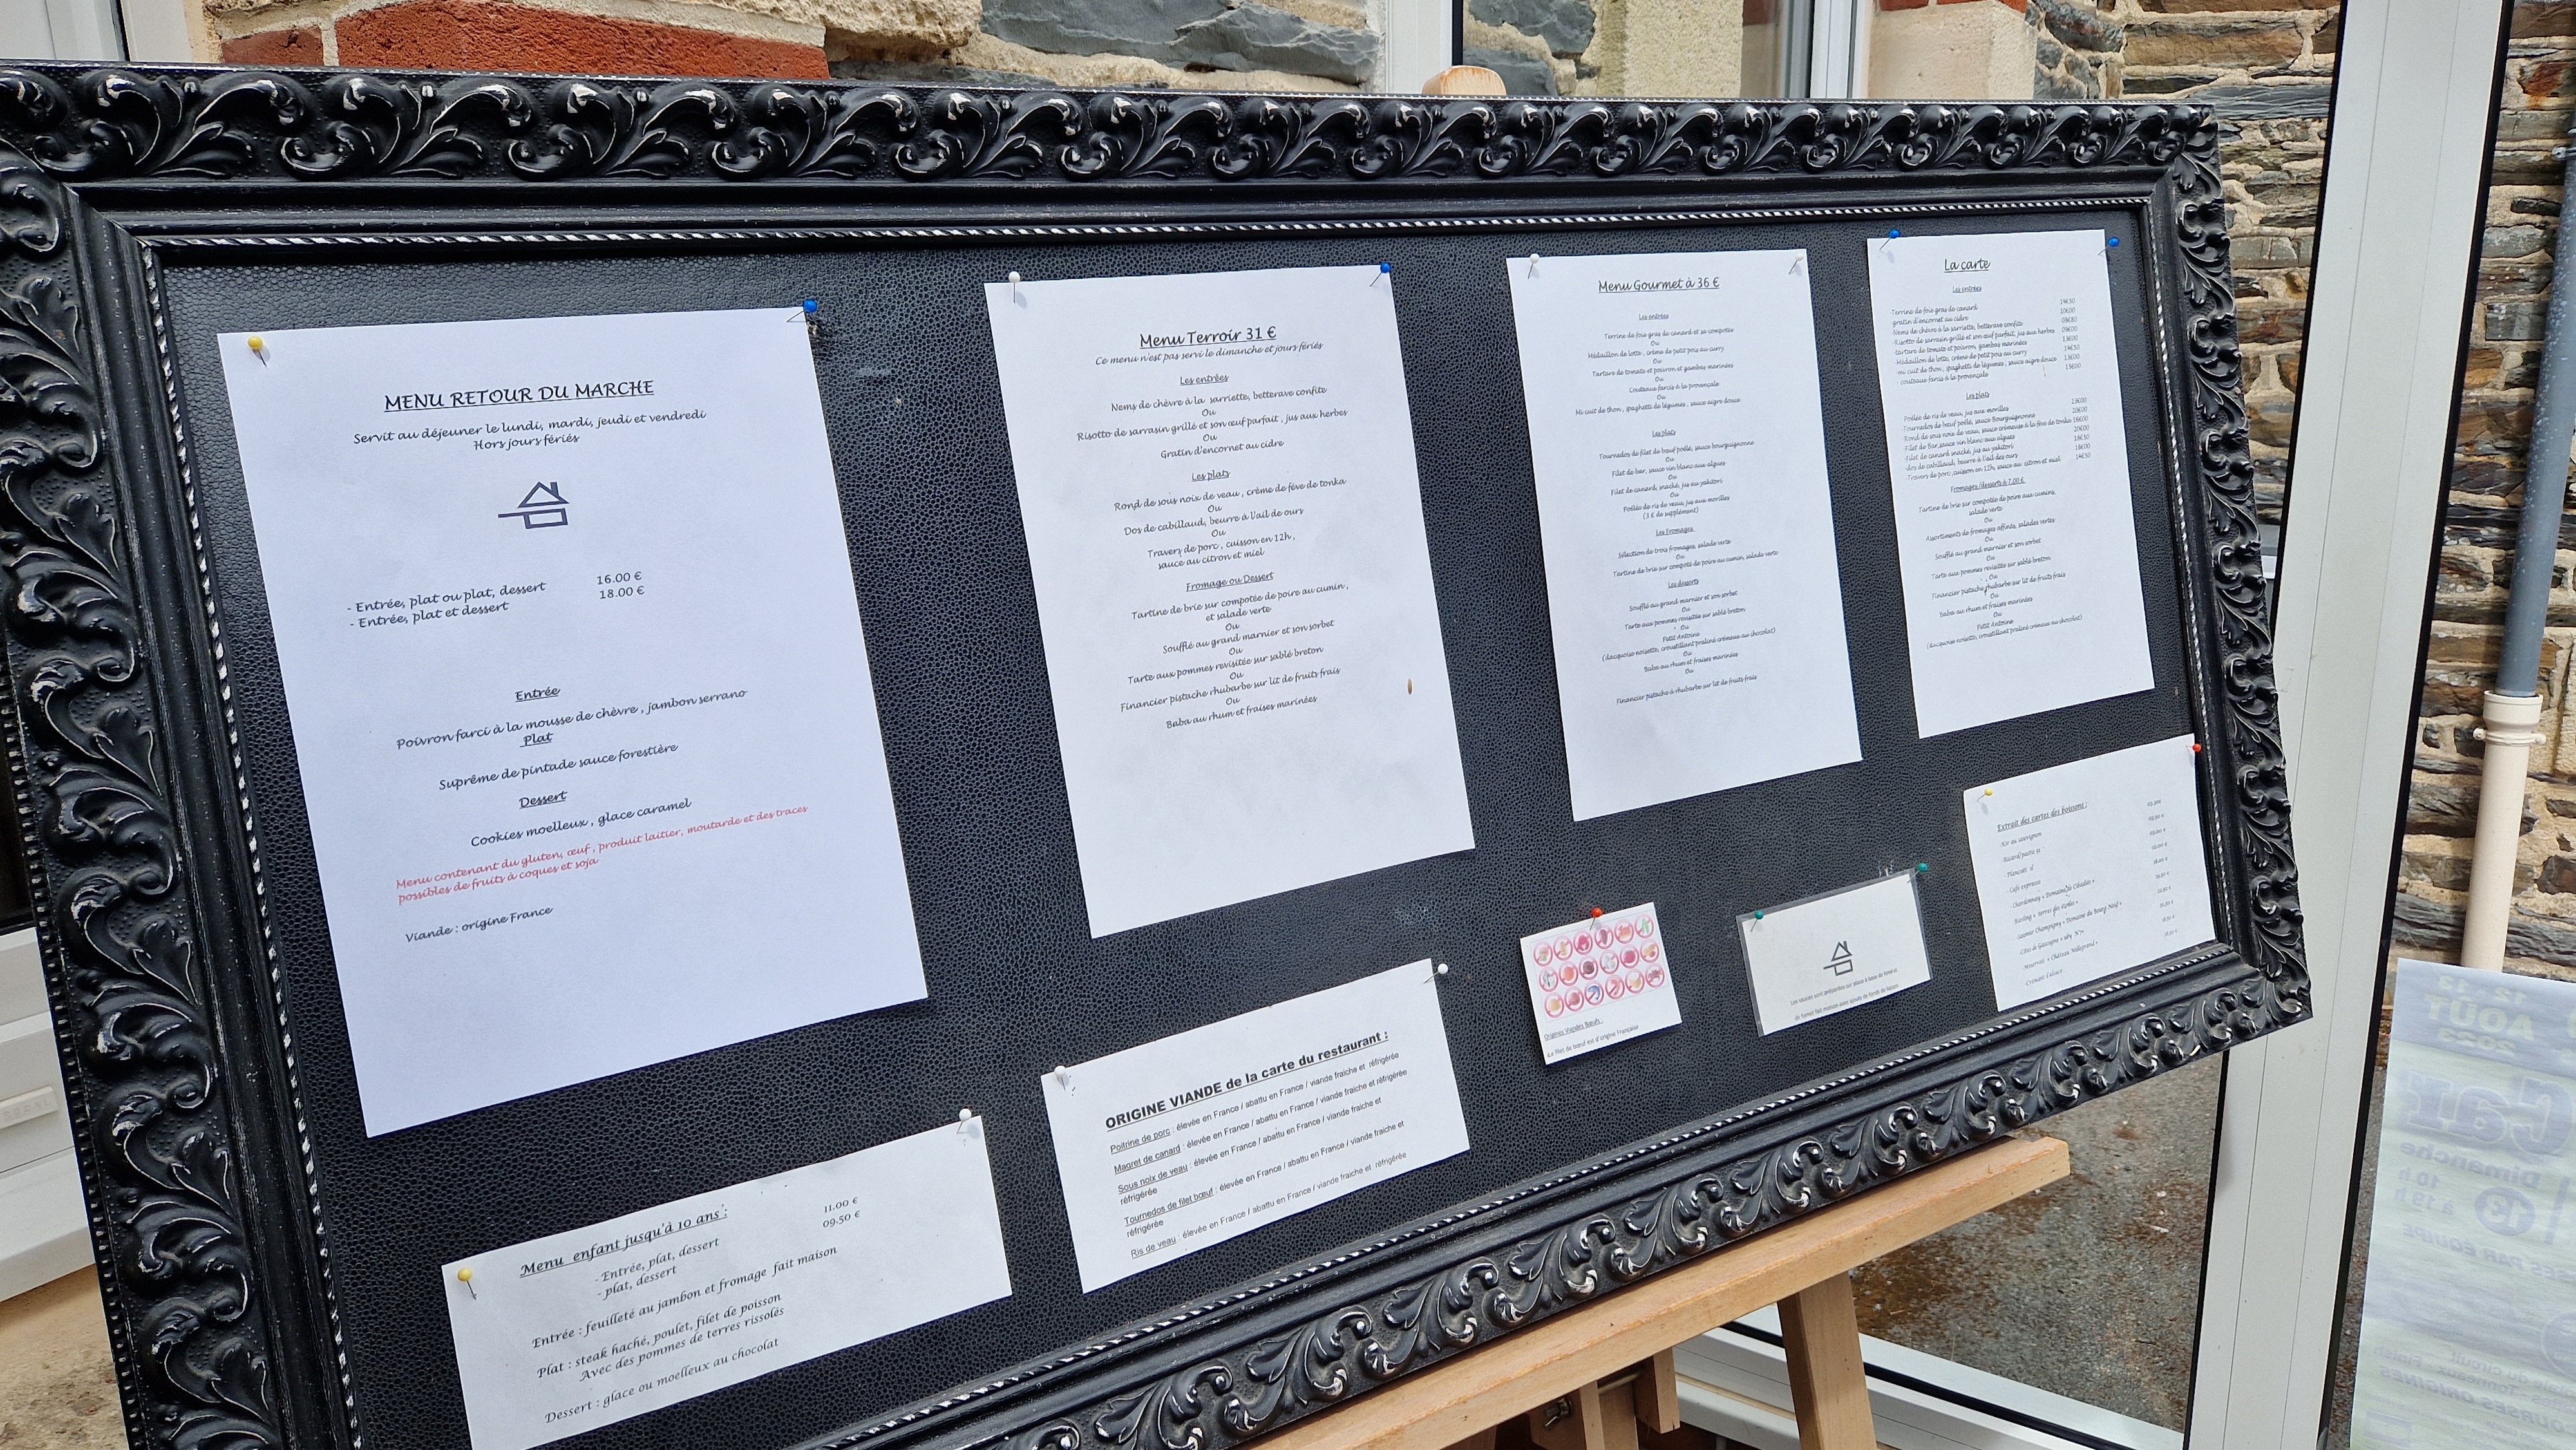 MENU RETOUR DU MARCHE
Servit au déjeuner le lundi, mardi, jeudi et vendredi
Hors jours fériés
- Entrée, plat ou plat, dessert 16.00 €
- Entrée, plat et dessert 18.00 €
Entrée
Poivron farci à la mousse de chèvre , jambon serrano
Plat
Suprême de pintade sauce forestière
Dessert
Cookies moelleux , glace caramel
Menu contenant du gluten, œuf , produit laitier, moutarde et des traces
possibles de fruits à coques et soja
Viande : origine France
Menu Terroir 31 €
Ce menu n'est pas servi le dimanche et jours fériés
Les entrées
Nems de chèvre à la sarriette, betterave confite
Ou
Risotto de sarrasin grillé et son œuf parfait , jus aux herbes
Ou
Gratin d'encornet au cidre
Les plats
Rond de sous noix de veau , crème de fève de tonka
Ou
Dos de cabillaud, beurre à l'ail de ours
Ou
Travers de porc , cuisson en 12h ,
sauce au citron et miel
Fromage ou Dessert
Tartine de brie sur compotée de poire au cumin ,
et salade verte
Ou
Soufflé au grand marnier et son sorbet
Ou
Tarte aux pommes revisitée sur sablé breton
Ou
Financier pistache rhubarbe sur lit de fruits frais
Ou
Baba au rhum et fraises marinées
Menu Gourmet à 36 €
Les entrées
Terrine de foie gras de canard et sa compotée
Ou
Médaillon de lotte , crème de petit pois au curry
Ou
Tartare de tomate et poivron et gambas marinées
Ou
Couteaux farcis à la provençale
Ou
Mi cuit de thon , spaghetti de légumes , sauce aigre douce
Les plats
Tournedos de filet de bœuf poêlé, sauce bourguignonne
Ou
Filet de bar, sauce vin blanc aux algues
Ou
Filet de canard, snaché, jus au yakitori
Ou
Poêlée de ris de veau, jus aux morilles
(3 € de supplément)
Les Fromages
Sélection de trois fromages, salade verte
Ou
Tartine de brie sur compoté de poire au cumin, salade verte
Les desserts
Soufflé au grand marnier et son sorbet
Ou
Tarte aux pommes revisitée sur sablé breton
Ou
Petit Antoine
(dacquoise noisette, croustillant praliné crémeux au chocolat)
Ou
Baba au rhum et fraises marinées
Ou
Financier pistache à rhubarbe sur lit de fruits frais
La carte
Les entrées
Terrine de foie gras de canard 14€50
gratin d'encornet au cidre 10€00
-Nems de chèvre à la sarriette, betterave confite 09€80
-Risotto de sarrasin grillé et son œuf parfait, jus aux herbes 09€00
-tartare de tomate et poivron, gambas marinées 13€00
-Médaillon de lotte, crème de petit pois au curry 14€50
-mi cuit de thon , spaghetti de légumes , sauce aigre douce 13€00
- couteaux farcis à la provençale 15€00
Les plats
Poêlée de ris de veau, jus aux morilles
Tournedos de bœuf poêlé, sauce Bourguignonne 20€00
Rond de sous noix de veau, sauce crémeuse à la fève de tonka 16€00
Filet de Bar, sauce vin blanc aux algues 20€00
-filet de canard snaché, jus au yakitori 18€50
-dos de cabillaud, beurre à l'ail des ours 16€00
-Travers de porc ,cuisson en 12h, sauce au citron et miel 14€50
Fromages /desserts à 7.00 €
Tartine de brie sur compotée de poire aux cumins,
salade verte
Ou
Assortiments de fromages affinés, salades vertes
Ou
Soufflé au grand marnier et son sorbet
Ou
Tarte aux pommes revisitée sur sablé breton
Ou
Financier pistache rhubarbe sur lit de fruits frais
Ou
Baba au rhum et fraises marinées
Ou
Petit Antoine
(dacquoise noisette, croustillant praliné crémeux au chocolat)
Menu enfant jusqu'à 10 ans :
- Entrée, plat, dessert 11.00 €
- plat, dessert 09.50 €
Entrée : feuilleté au jambon et fromage fait maison
Plat : steak haché, poulet, filet de poisson
Avec des pommes de terres rissolés
Dessert : glace ou moelleux au chocolat
ORIGINE VIANDE de la carte du restaurant :
Poitrine de porc : élevée en France / abattu en France / viande fraiche et réfrigérée
Magret de canard : élevée en France / abattu en France / viande fraiche et réfrigérée
Sous noix de veau : élevée en France / abattu en France / viande fraiche et
réfrigérée
Tournedos de filet bœuf : élevée en France / abattu en France / viande fraiche et
réfrigérée
Ris de veau : élevée en France / abattu en France / viande fraiche et réfrigérée
Origines Viandes Bœufs :
Le filet de bœuf est d'origine Française
Les sauces sont préparées sur place à base de fond et
de fumet fait maison avec ajouts de fonds de liaison
Extrait des cartes des boissons :
-Kir au sauvignon
-Café expresso
Chardonnay « Domaine de Cibadiès »
Riesling « terres des étoiles »
Saumur Champigny « Domaine du Bourg Neuf »
Côtes de Gascogne « uby N°
Crémant d'alsace
AOÛT
Dimanche
10 h
à 19 h